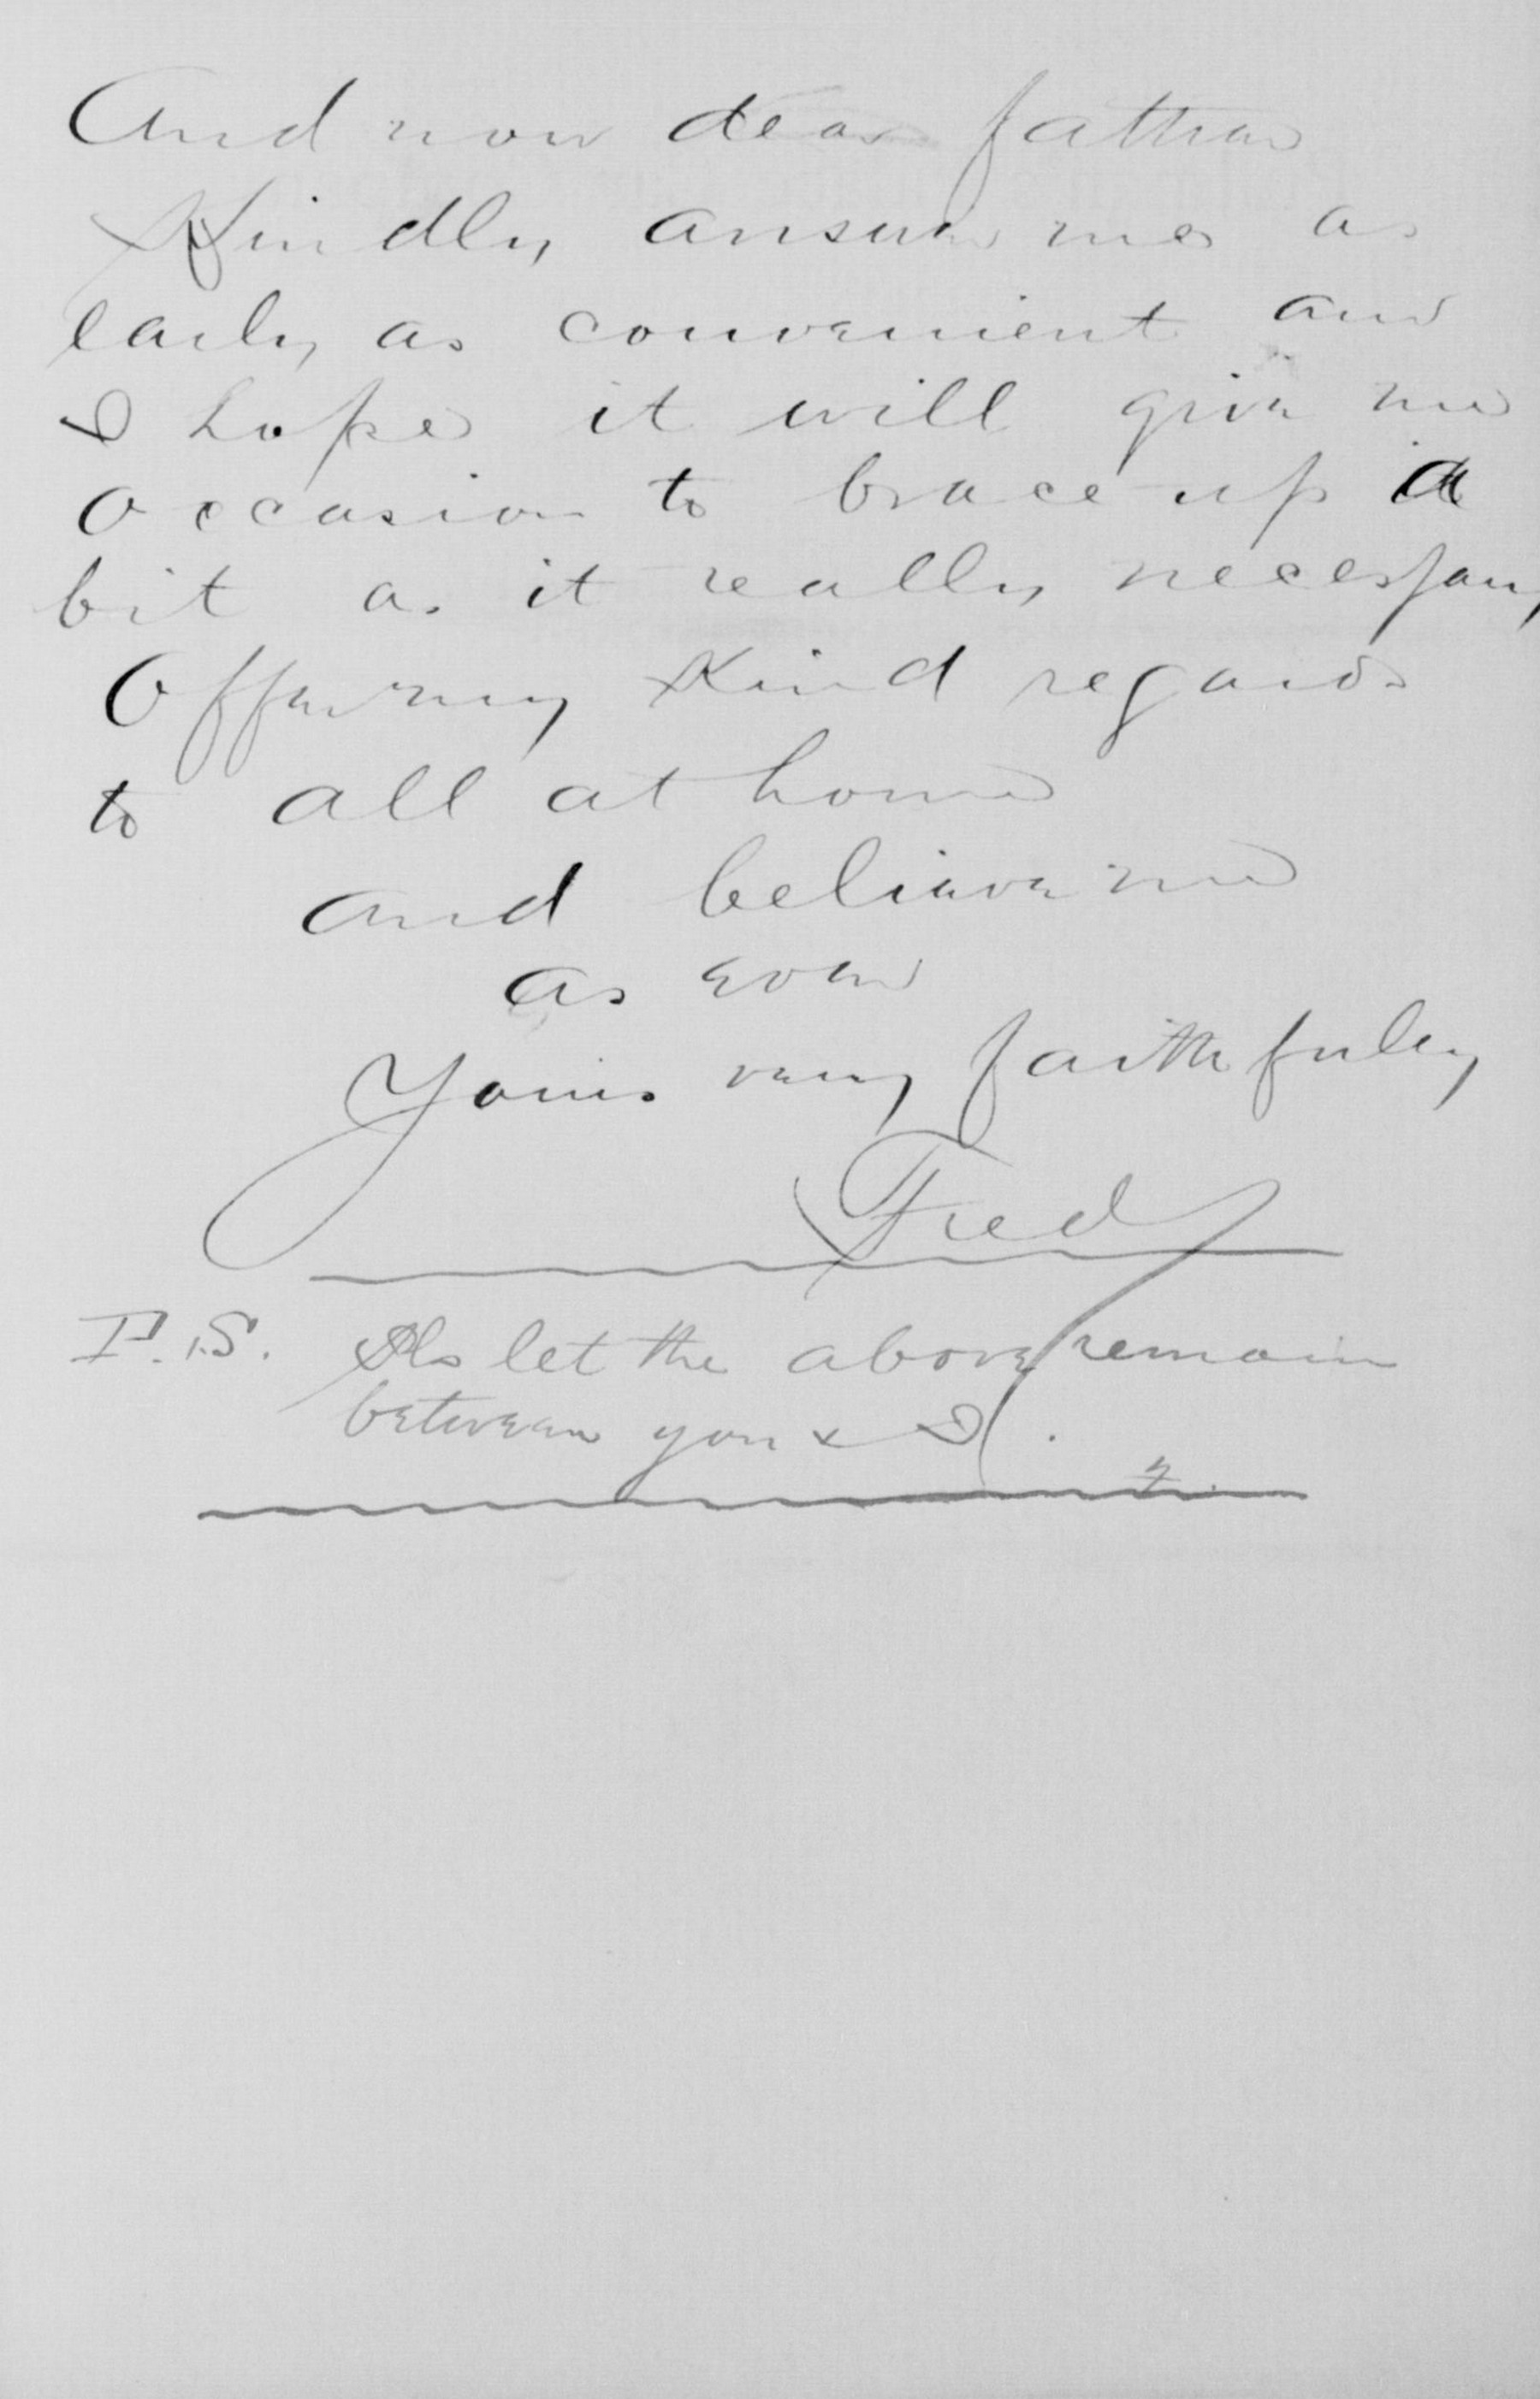 And now dear father
Kindly answer me as
early as convenient and
I hope it will give me
occasion to brace up a
bit as it really necessary
Offering kind regards
to all at home
and believe me
as ever
Yours very faithfully
Fred
P.S. Pls let the above remain
between you & I.
F.